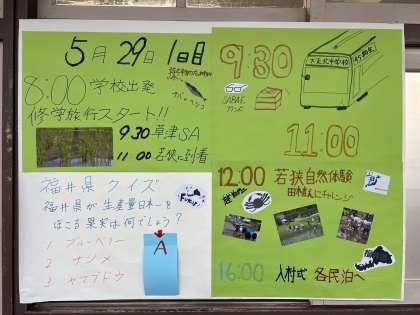 5月29日 1日目
8:00 学校出発
修学旅行スタート!!
9:30 草津SA
11:00 若狭に到着
福井県 クイズ
福井県が生産量日本一を
ほこる果実は何でしょう?
1 ブルーベリー
2 ナツメ
3 ヤマブドウ
A
9:30
SABAE
11:00
12:00 若狭自然体験
田植えにチャレンジ
16:00 入村式 各民泊へ